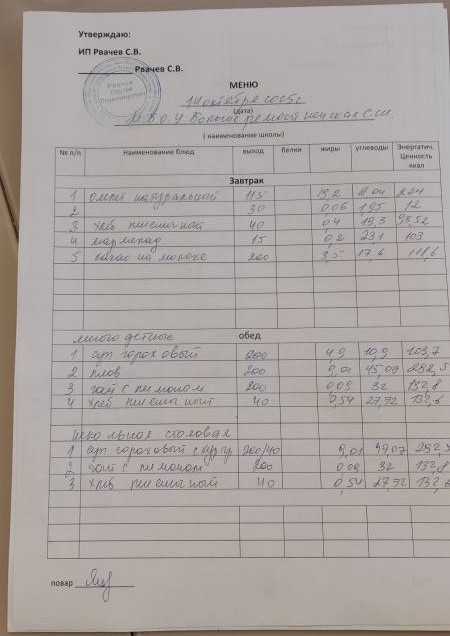 Утверждаю:
ИП Рвачев С.В.
Рвачев С.В.
МЕНЮ
14 октября 2025г
(дата)
М.Б.О.У. Больше
( наименование школы)
№ п/п Наименование блюд выход белки жиры углеводы Энергатич. Ценность ккал
Завтрак
1 омлет натуральный 115 19,2 2,04 224
2 30 0,06 1,95 12
3 хлеб пшеничный 40 0,4 19,3 93,52
4 мармелад 15 0,2 23,1 103
5 какао на молоке 200 3,5 17,6 118,6
многодетные обед
1 суп гороховый 200 4,9 10,9 103,7
2 плов 200 9,01 45,09 292,5
3 чай с лимоном 200 0,09 32 132,8
4 хлеб пшеничный 40 0,54 27,72 132,6
школьная столовая
1 суп гороховый с 200/40 9,01 292,5
2 чай с лимоном 200 0,09 32 132,8
3 хлеб пшеничный 40 0,54 27,72 132,6
повар